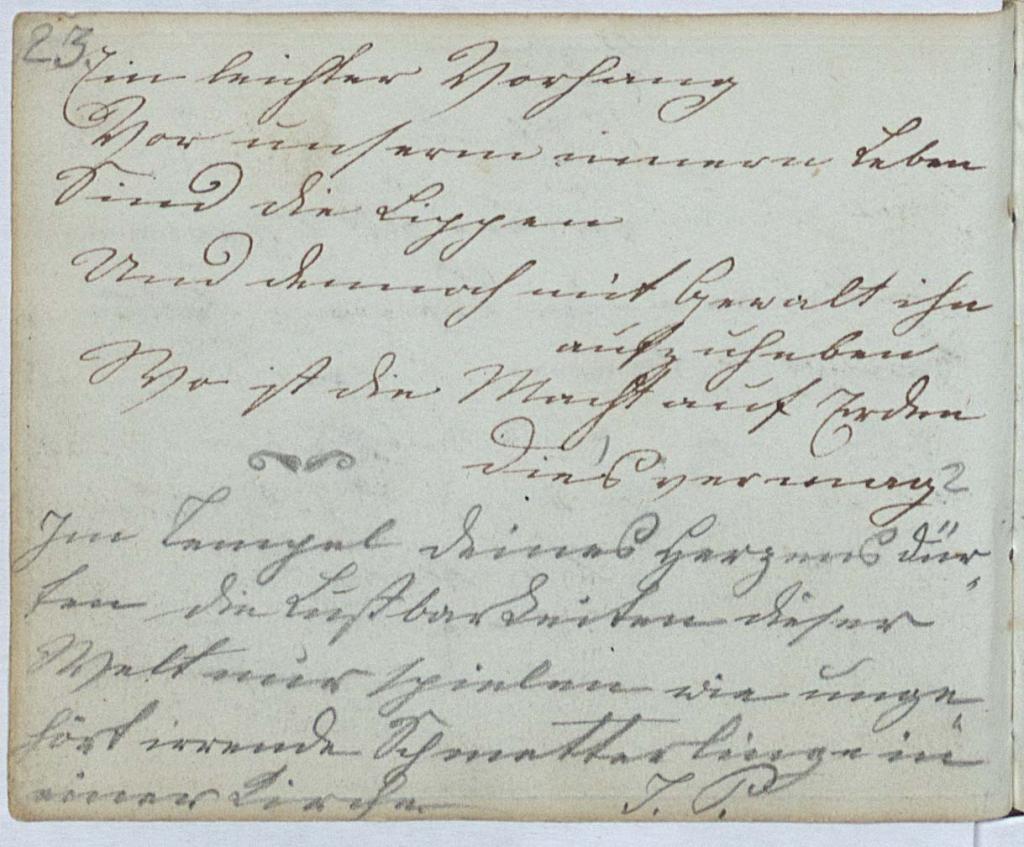 23.
Ein leichter Vorhang
Vor unserm innern Leben
Sind die Lippen
Und dennoch mit Gewalt ihn
aufzuheben
Wo ist die Macht auf Erden
Die's vermag?
Im Tempel deines Herzens dür-
fen die Lustbarkeiten dieser
Welt nur spielen wie unge-
hört irrende Schmetterlinge in
einer Kirche J. P.